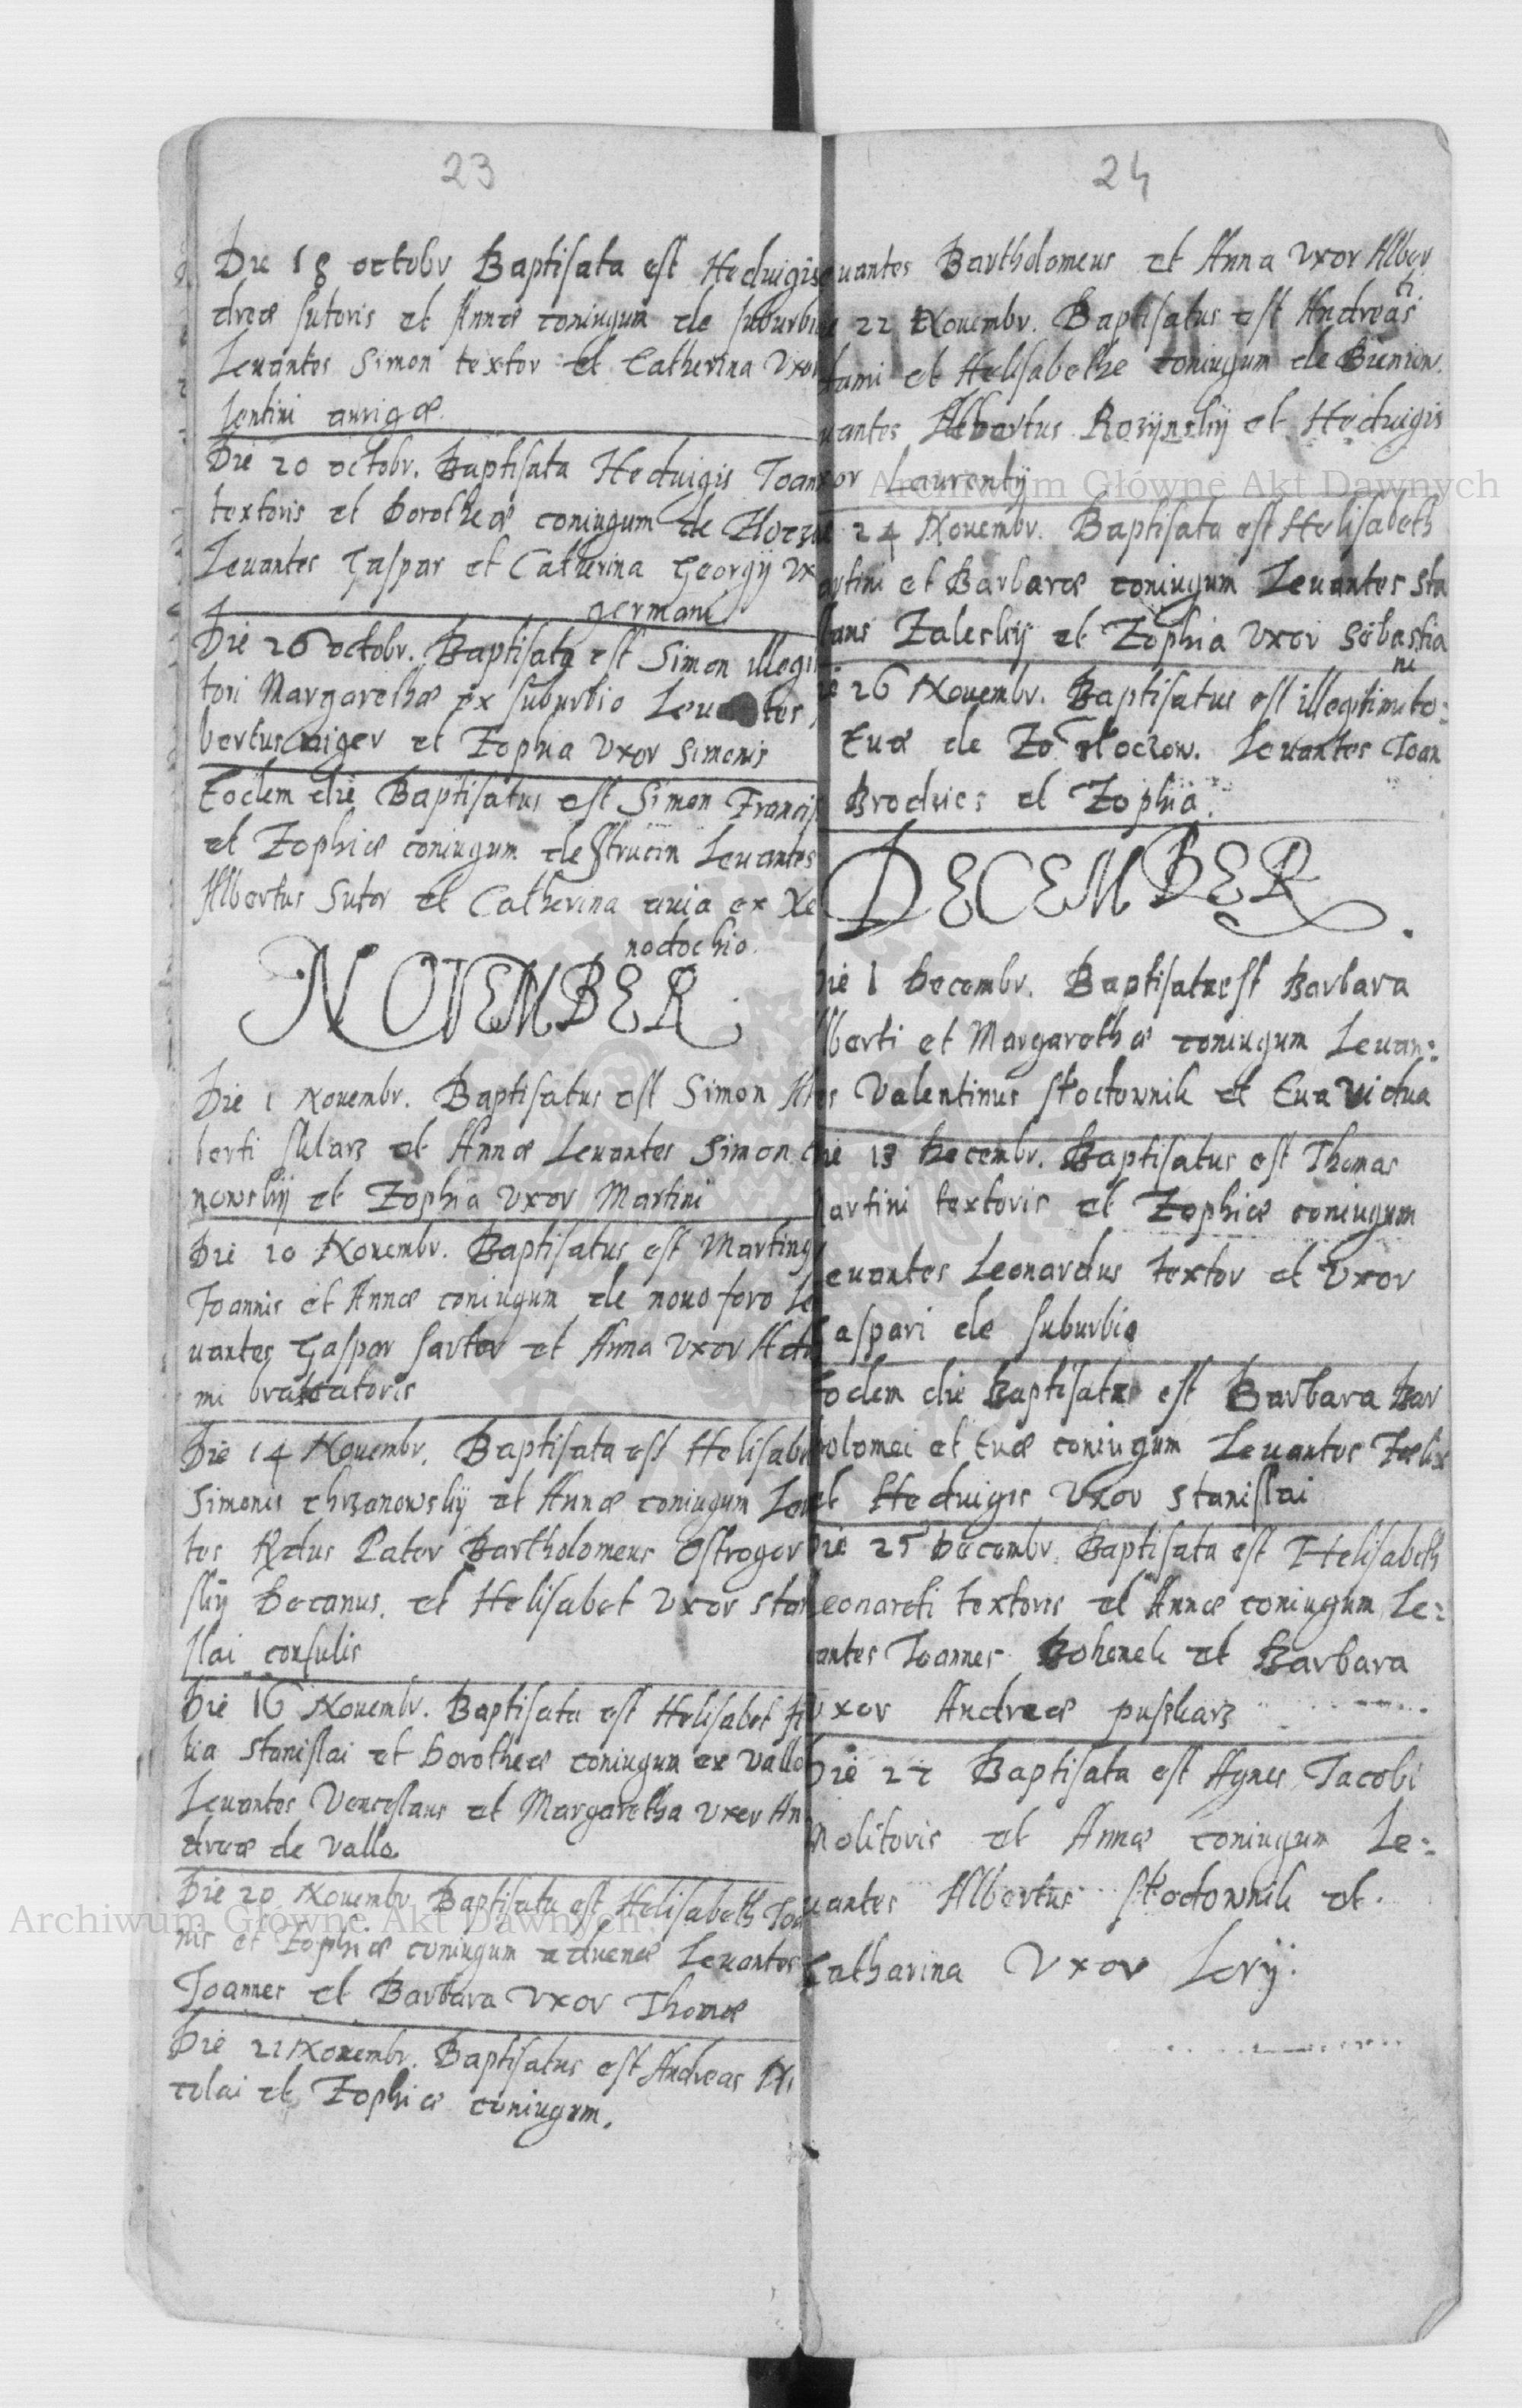 23
Die 18 octobr Baptisata est Hedvigis
dreæ sutoris et Annæ coniugum de suburbio
Levantes Simon textor et Catherina Vxor
lentini aurigæ.
Die 20 octobr. Baptisata Hedvigis Joan
textoris et Dorotheæ coniugum de Zloczow
Levantes Gaspar et Catherina Georgij vx
germani
Die 26 octobr. Baptisatq est Simon illegi
tori Margarethæ ex suburbio Levantes
bertus niger et Zophia Vxor Simonis
Eodem die Baptisatus est Simon Francis
et Zophiæ coniugum de Strucin Levantes
Albertus Sutor et Catherina avia ex Xe
nodochio.
NOVEMBER
Die 1 Novembr. Baptisatus est Simon Al
berti sklarz et Annæ Levantes Simon
nowskij et Zophia Vxor Martini
Die 10 Novembr. Baptisatus est Martinus
Joannis et Annæ coniugum de novo foro Le
vantes Gaspar sartor et Anna Vxor Ada
mi braxatoris
Die 14 Novembr. Baptisata est Helisabe
Simonis chrzanowskij et Annæ coniugum Levan
tes Rdus Pater Bartholomeus Ostrogor
skij Decanus. et Helisabet Vxor Stani
slai consulis
Die 16 Novembr. Baptisata est Helisabet fi
lia Stanislai et Dorotheæ coniugum ex vallo
Levantes Venceslaus et Margaretha Vxor An
dreæ de vallo
Die 20 Novembr. Baptisata est Helisabeth Joa
nis et Zophiæ coniugum advenæ Levantes
Joannes et Barbara Vxor Thomæ
Die 21 Novembr. Baptisatus est Andreas Ni
colai et Zophiæ coniugum.
24
evantes Bartholomeus et Anna Vxor Alber
ti
22 Novembr. Baptisatus est Andreas
et Helisabethe coniugum de Bieniow.
vantes Albertus Rozijnskij et Hedvigis
xor Laurentij
24 Novembr. Baptisata est Helisabeth
artini et Barbaræ coniugum Levantes Sta
laus Zaleskij et Zophia Vxor Sebastia
ni
ie 26 Novembr. Baptisatus est illegitimito:
Evæ de Zo Zloczow. Levantes Joan
Brodvics et Zophia.
DECEMBER.
Die 1 Decembr. Baptisataest Barbara
lberti et Margarethæ coniugum Levan:
es Valentinus Słoctownik et Eva vidua
Die 13 Decembr. Baptisatus est Thomas
Martini textoris et Zophiæ coniugum
Levantes Leonardus textor et Vxor
Gaspari de suburbio
Eodem die Baptisata est Barbara Bar
holomei et Evæ coniugum Levantes Fœlix
et Hedvigis Vxor Stanislai
Die 25 Decembr. Baptisata est Helisabeth
Leonardi textoris et Annæ coniugum Le:
vantes Joannes Bohenek et Barbara
Vxor Andreæ puszkarz
Die 27 Baptisata est Agnes Jacobi
Molitoris et Annæ coniugum Le:
vantes Albertus Słoctownik et
Catharina Vxor Lorij.
Archiwum Główne Akt Dawnych
Archiwum Główne Akt Dawnych